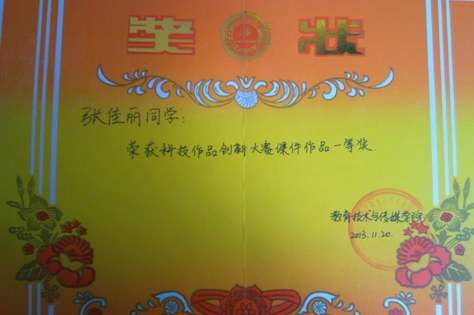 奖 状
张佳丽同学:
荣获科技作品创新大赛课件作品一等奖
教育技术与传媒学院
2013.11.20.